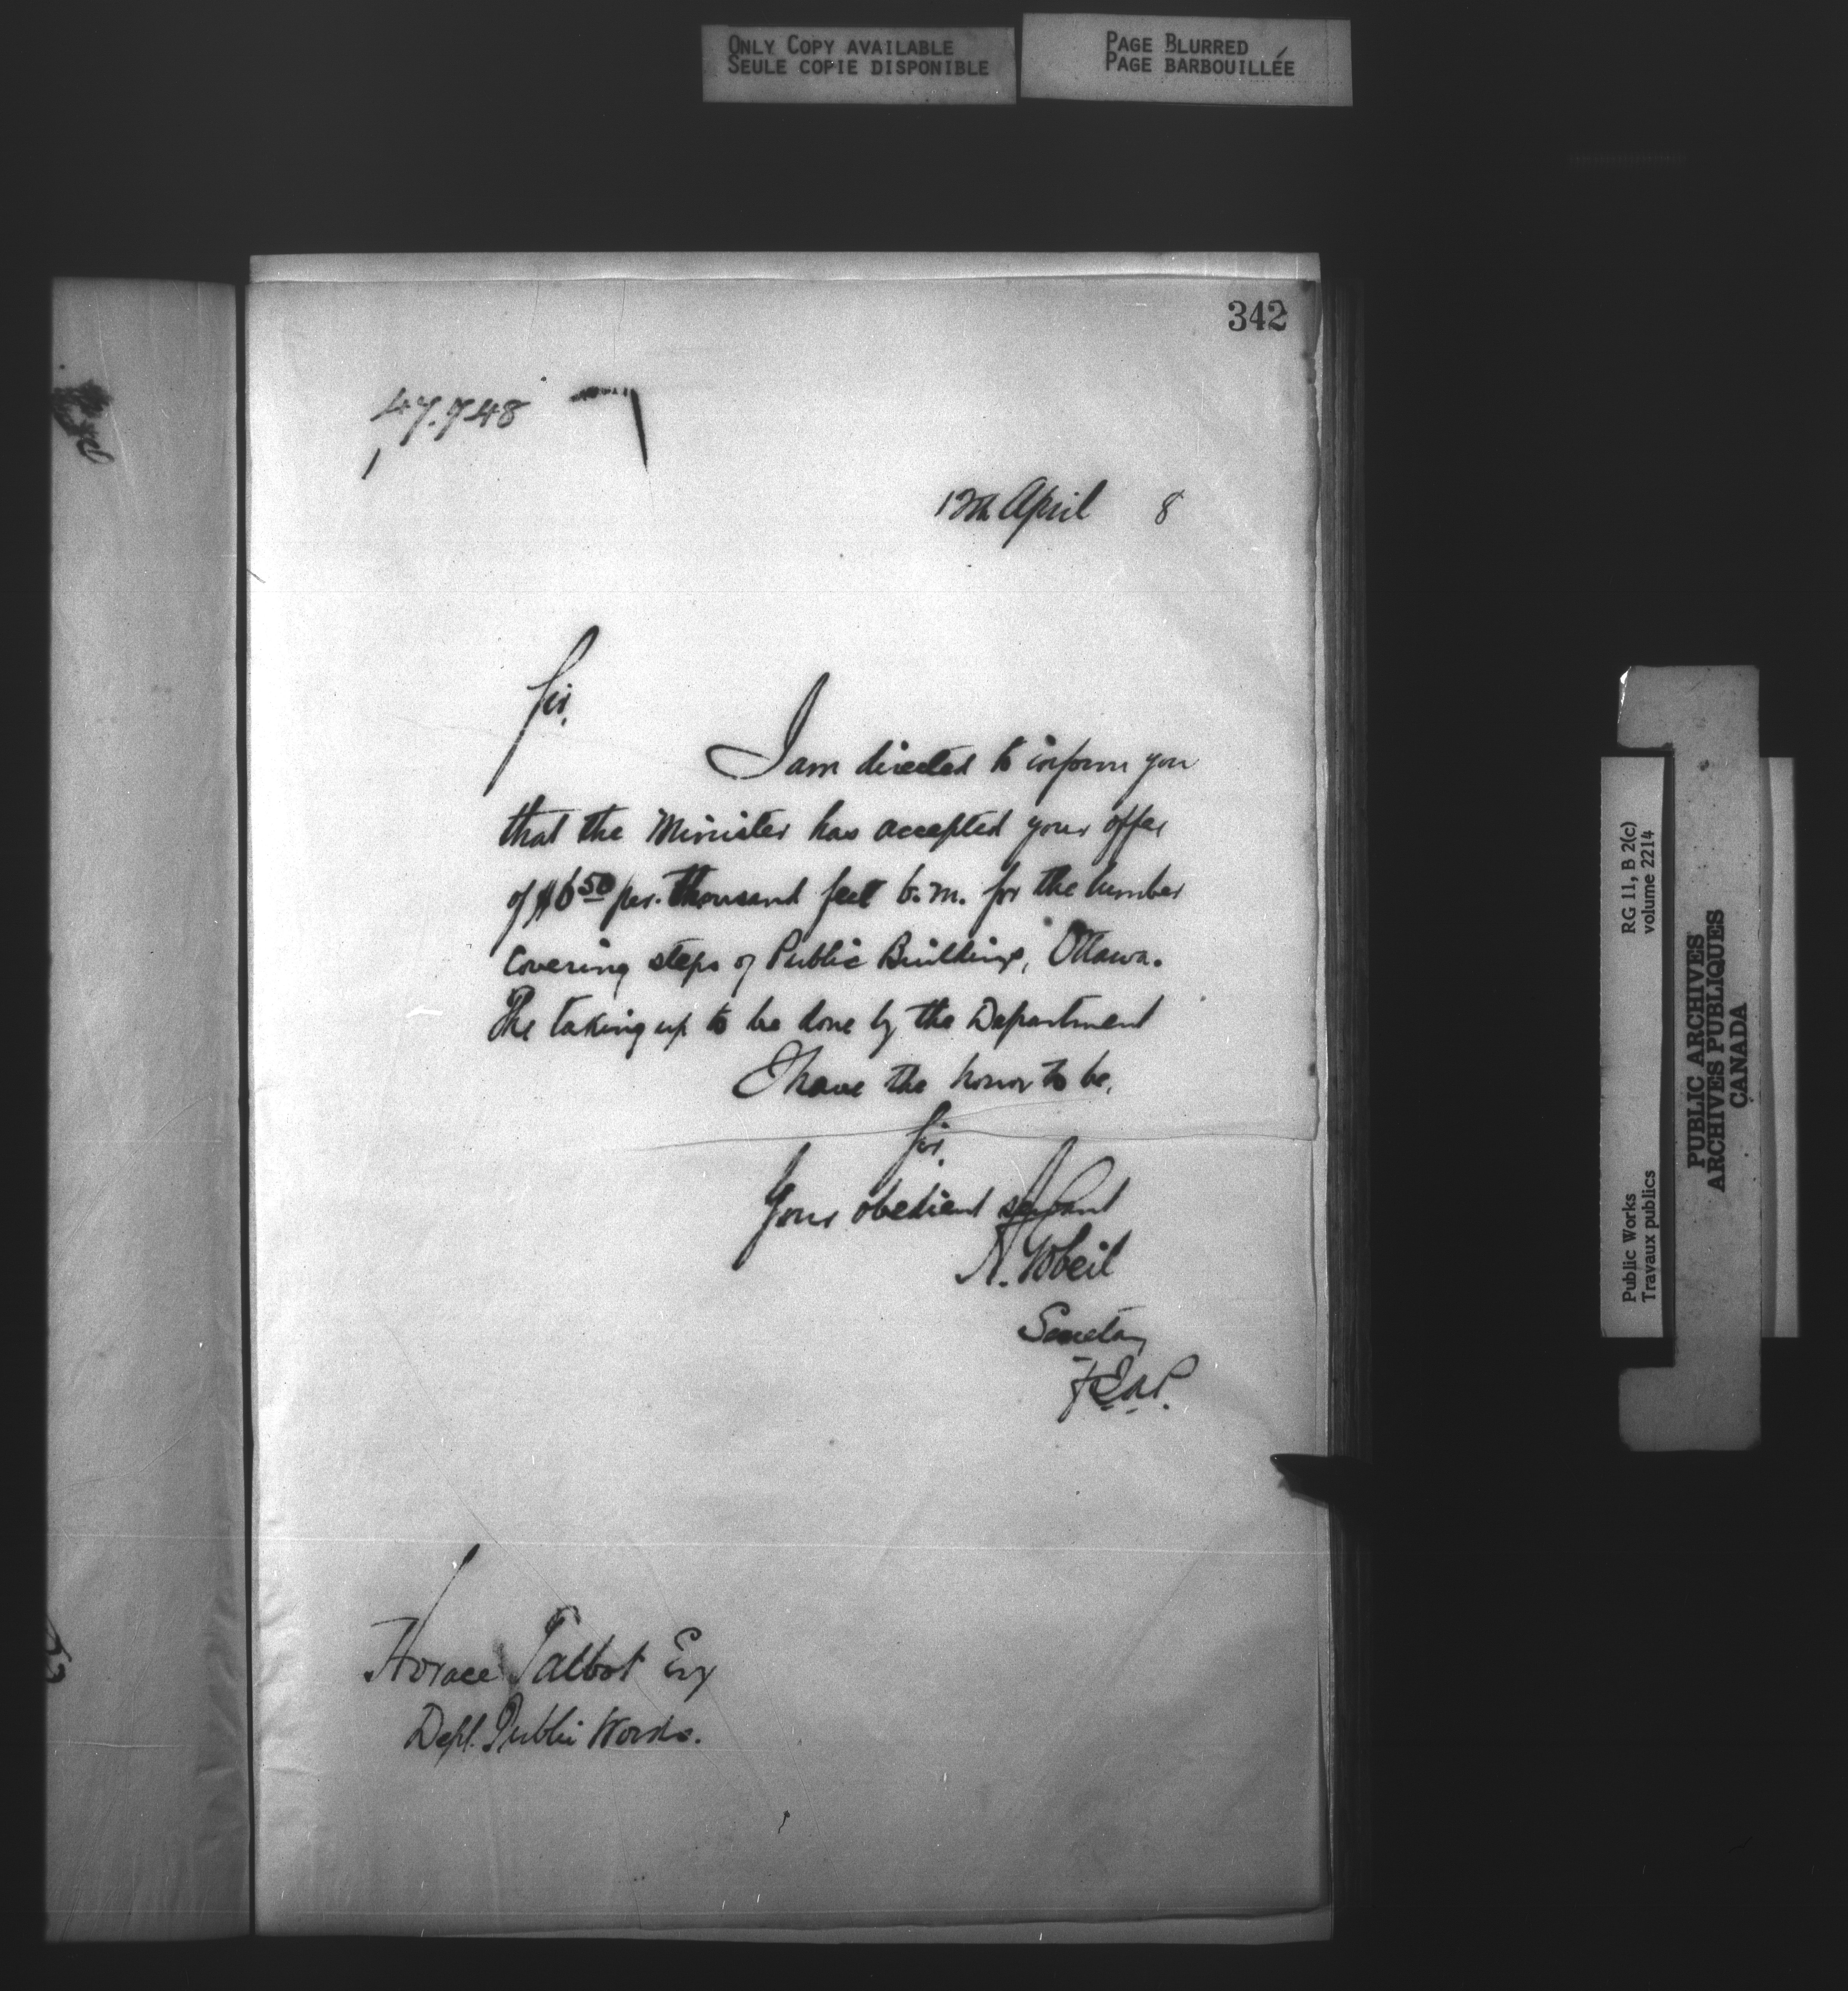 ONLY COPY AVAILABLE
SEULE COPIE DISPONIBLE
PAGE BLURRED
PAGE BARBOUILLÉE
342
47.748
12th April 8
Sir,
I am directed to inform you
that the Minister has accepted your offer
of $6 50 per. thousand feet b.m. for the lumber
covering steps of Public Buildings, Ottawa.
The taking up to be done by the Department
I have the honor to be,
Sir,
Your obedient servant
A. Gobeil
Secretary
Horace Talbot Esq
Dept. Public Works.
RG 11, B 2(c)
volume 2214
Public Works
Travaux publics
PUBLIC ARCHIVES
ARCHIVES PUBLIQUES
CANADA